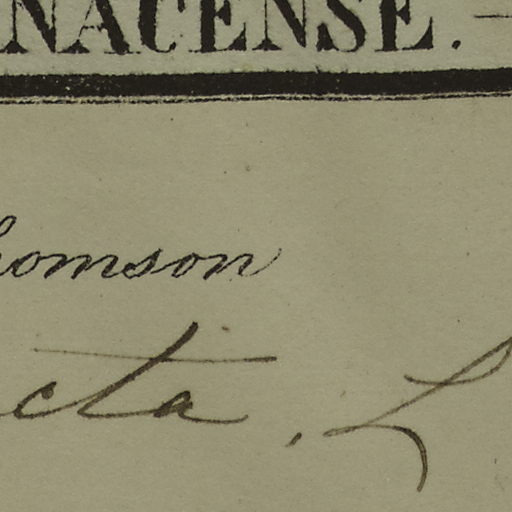 NACENSE.
homson
cta, L